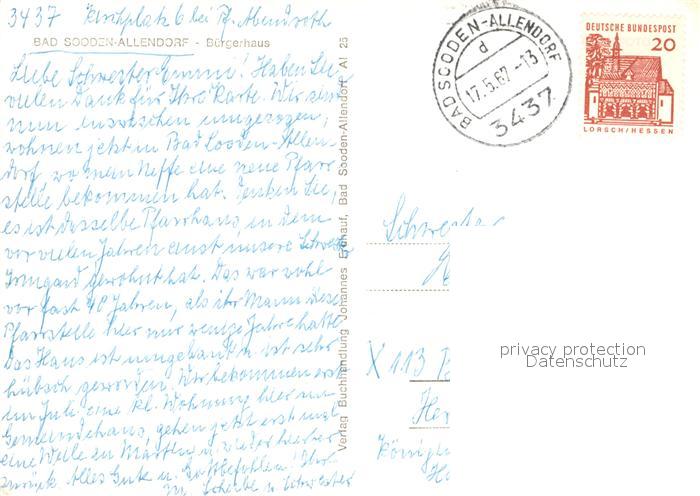 3437 Kirchplatz 6 bei Pf. Abendroth
BAD SOODEN-ALLENDORF - Bürgerhaus
Liebe Schwester Emmi! Haben Sie
vielen Dank für Ihre Karte. Wir sind
nun inzwischen umgezogen,
wohnen jetzt in Bad Sooden-Allen-
dorf, wo mein Neffe eine neue Pfarr-
stelle bekommen hat. Denken Sie,
es ist dasselbe Pfarrhaus, in dem
vor vielen Jahren einst unsere Schwester
Irmgard gewohnt hat. Das war wohl
vor fast 40 Jahren, als ihr Mann diese
Pfarrstelle hier nur wenige Jahre hatte.
Das Haus ist umgebaut u. ist sehr
hübsch geworden. Wir bekommen erst
im Juli eine kl. Wohnung hier am
Gemeindehaus, gehen jetzt erst mal
eine Weile zu u. wieder hierher
zurück. Alles Gute u. Gottbefohlen! Ihre
M. u. Schwester
Verlag Buchhandlung Johannes Bad Sooden-Allendorf Al 25
BAD SOODEN-ALLENDORF
d
17.5.67.-13
3437
DEUTSCHE BUNDESPOST
20
LORSCH/HESSEN
Schwester
X 113
privacy protection
Datenschutz